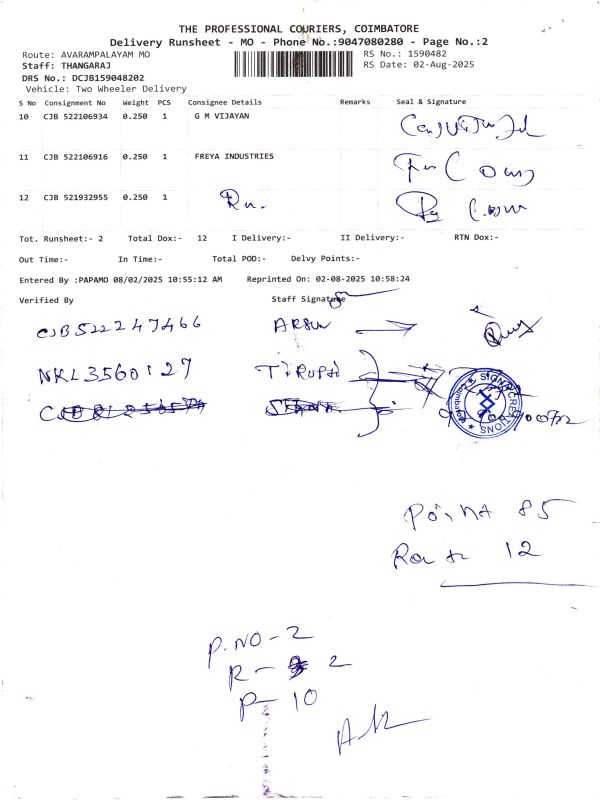 THE PROFESSIONAL COURIERS, COIMBATORE
Delivery Runsheet - MO - Phone No.:9047080280 - Page No.:2
Route: AVARAMPALAYAM MO
RS No.: 1590482
Staff: THANGARAJ
RS Date: 02-Aug-2025
DRS No.: DCJB159048202
Vehicle: Two Wheeler Delivery
S No Consignment No Weight PCS Consignee Details Remarks Seal & Signature
10 CJB 522106934 0.250 1 G M VIJAYAN
11 CJB 522106916 0.250 1 FREYA INDUSTRIES
12 CJB 521932955 0.250 1
Tot. Runsheet:- 2 Total Dox:- 12 I Delivery:- II Delivery:- RTN Dox:-
Out Time:- In Time:- Total POD:- Delvy Points:-
Entered By :PAPAMO 08/02/2025 10:55:12 AM Reprinted On: 02-08-2025 10:58:24
Verified By Staff Signature
CJB522247466
NKL3560127 TiRUPti
SIGN CREATIONS
Point 85
12
P.NO - 2
R - 2
P - 10